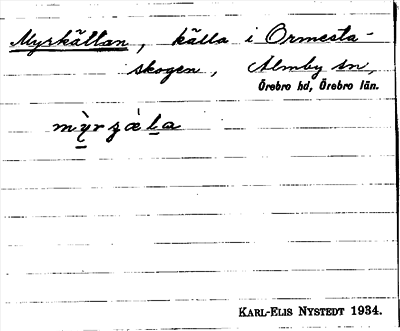 Myrkällan, källa i Ormesta-
skogen, Almby sn,
Örebro hd, Örebro län.
KARL-ELIS NYSTEDT 1934.